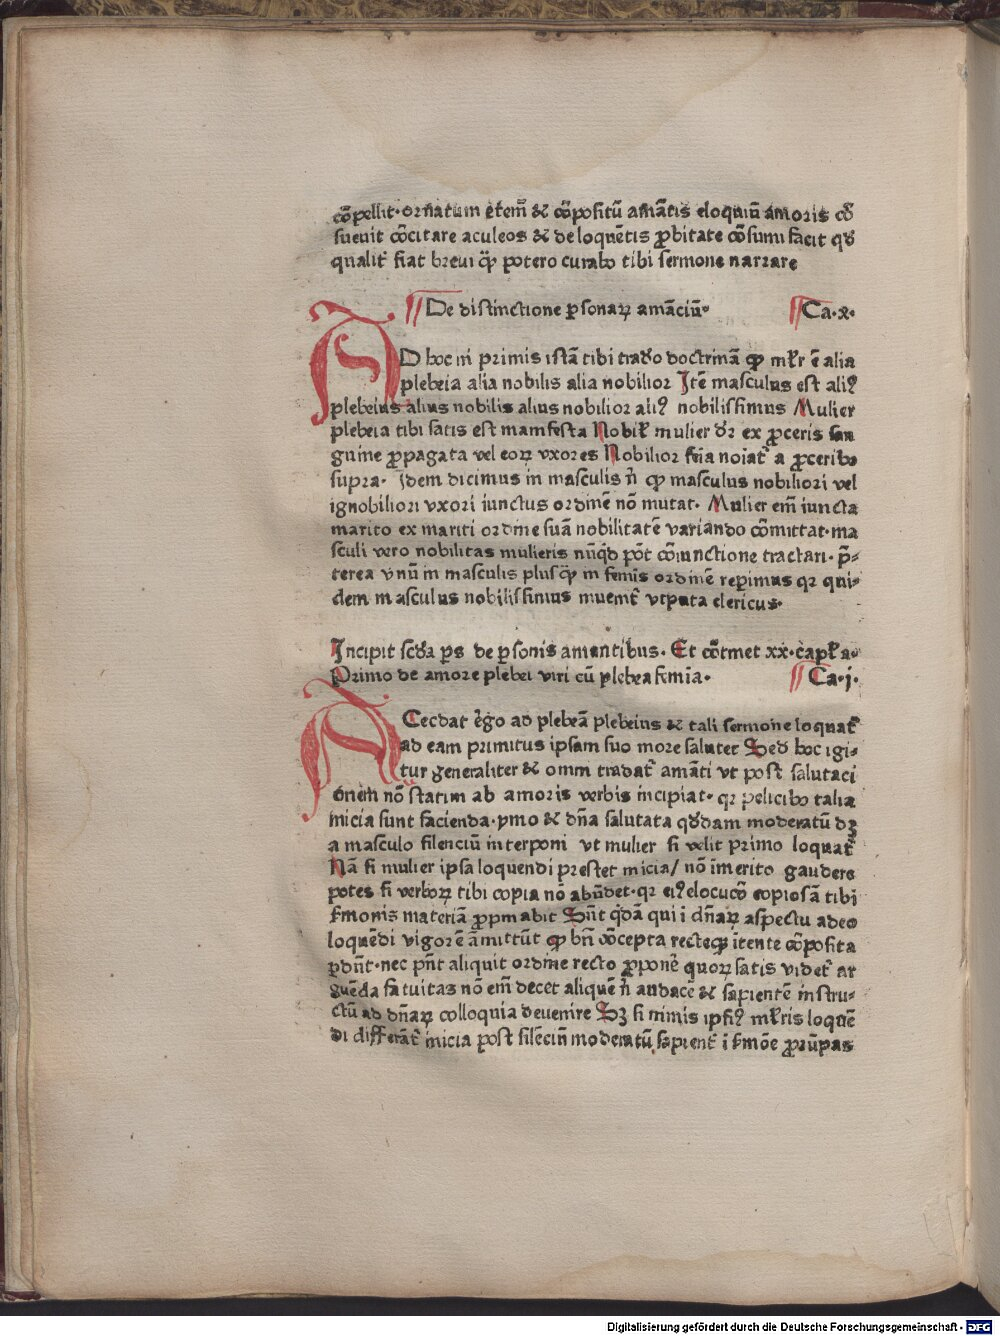 cōpellit·ornatum etem̄ & cōpositū amātis eloquiū amoris cō
sueuit cōcitare aculeos & de loquētis ꝓbitate cōsumi facit qđ
qualit᷑ fiat breui qͥꝫ potero curabo tibi sermone narrare
¶De distinctione ꝑsonaꝝ amāciū· ¶Ca·x·
AD hoc in primis istā tibi trado doctrinā ꝙ mĺr ē alia
plebeia alia nobilis alia nobilior Itē masculus est aliꝰ
plebeius alius nobilis alius nobilior aliꝰ nobilissimus Mulier
plebeia tibi satis est manifesta Nobil᷑ mulier dr̄ ex ꝓceris san
guine ꝓpagata vel eoꝝ vxores Nobilior feīa noiat᷑ a ꝓceribꝰ
supra· Idem dicimus in masculis n̄ ꝙ masculus nobiliori vel
ignobiliori vxori iunctus ordinē nō mutat· Mulier em̄ iuncta
marito ex mariti ordine suā nobilitatē variando cōmittat·ma
sculi vero nobilitas mulieris nūqd pōt cōiunctione tractari·p̄-
terea vnū in masculis plusqꝫ in femīs ordinē reperimus qꝛ qui-
dem masculus nobilissimus inuenit᷑ vtputa clericus·
Incipit scd̄a ꝑs de ꝑsonis amantibus· Et cōtinet xx·capl᷑a·
Primo de amore plebei viri cū plebea femīa· ¶Ca·j·
ACcedat ergo ad plebeā plebeius & tali sermone loquat᷑
ad eam primitus ipsam suo more salutet Sed hoc igi-
tur generaliter & omni tradat᷑ amāti vt post salutaci
onem nō statim ab amoris verbis incipiat·qꝛ pelicibꝰ talia
inicia sunt facienda·ymo & dn̄a salutata qddam moderatū dꝫ
a masculo silenciū interponi vt mulier si velit primo loquat᷑
Nā si mulier ipsa loquendi prestet inicia/ nō īmerito gaudere
potes si verboꝝ tibi copia nō abūdet·qꝛ eiꝰ elocucō copiosā tibi
s᷑monis materiā ꝓpinabit Sūt qdā qui i dn̄aꝝ aspectu adeo
loquēdi vigorē āmittūt ꝙ bn̄ cōcepta recteqꝫ ītente cōposita
ꝑdūt·nec pn̄t aliquit ordine recto ꝓponē quoꝝ satis videt᷑ ar
guēda fatuitas nō em̄ decet aliquē n̄ audacē & sapientē instru-
ctū ad dn̄aꝝ colloquia deuenire Sꝫ si nimis ipsiꝰ mĺris loquē
di differāt᷑ inicia post silēciū moderatū sapient᷑ i s᷑mōe ꝓrūpas
Digitalisierung gefördert durch die Deutsche Forschungsgemeinschaft - DFG